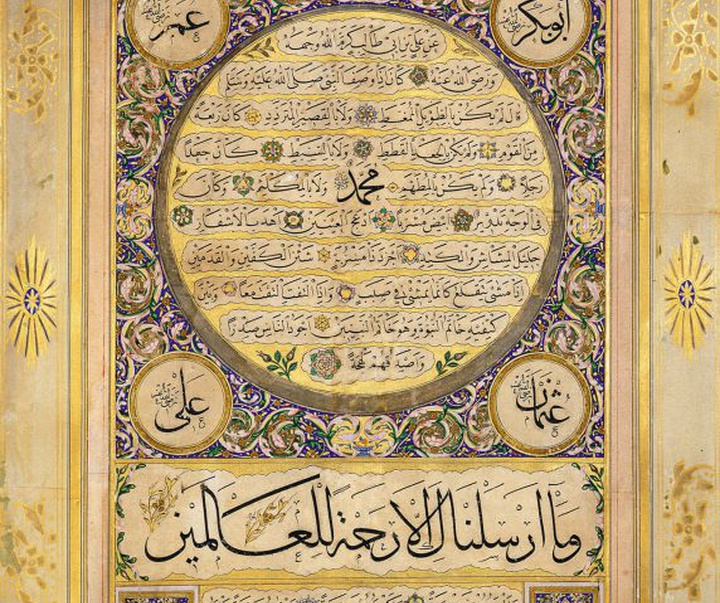 أبوبكر رضي الله عنه
عمر رضي الله عنه
عن علي بن أبي طالب كرم الله وجهه
ورضي الله عنه كان إذا وصف النبي صلى الله عليه وسلم
قال لم يكن بالطويل الممغط ولا بالقصير المتردد كان ربعة
من القوم ولم يكن بالجعد القطط ولا بالسبط كان جعدا
رجلا ولم يكن بالمطهم محمد ولا بالمكلثم وكان
في الوجه تدوير أبيض مشربا أدعج العينين أهدب الأشفار
جليل المشاش والكتد أجرد ذا مسربة شثن الكفين والقدمين
إذا مشى يتقلع كأنما يمشي في صبب وإذا التفت التفت معا وبين
كتفيه خاتم النبوة وهو خاتم النبيين أجود الناس صدرا
وأصدقهم لهجة
عثمان رضي الله عنه
علي رضي الله عنه
وما أرسلناك إلا رحمة للعالمين